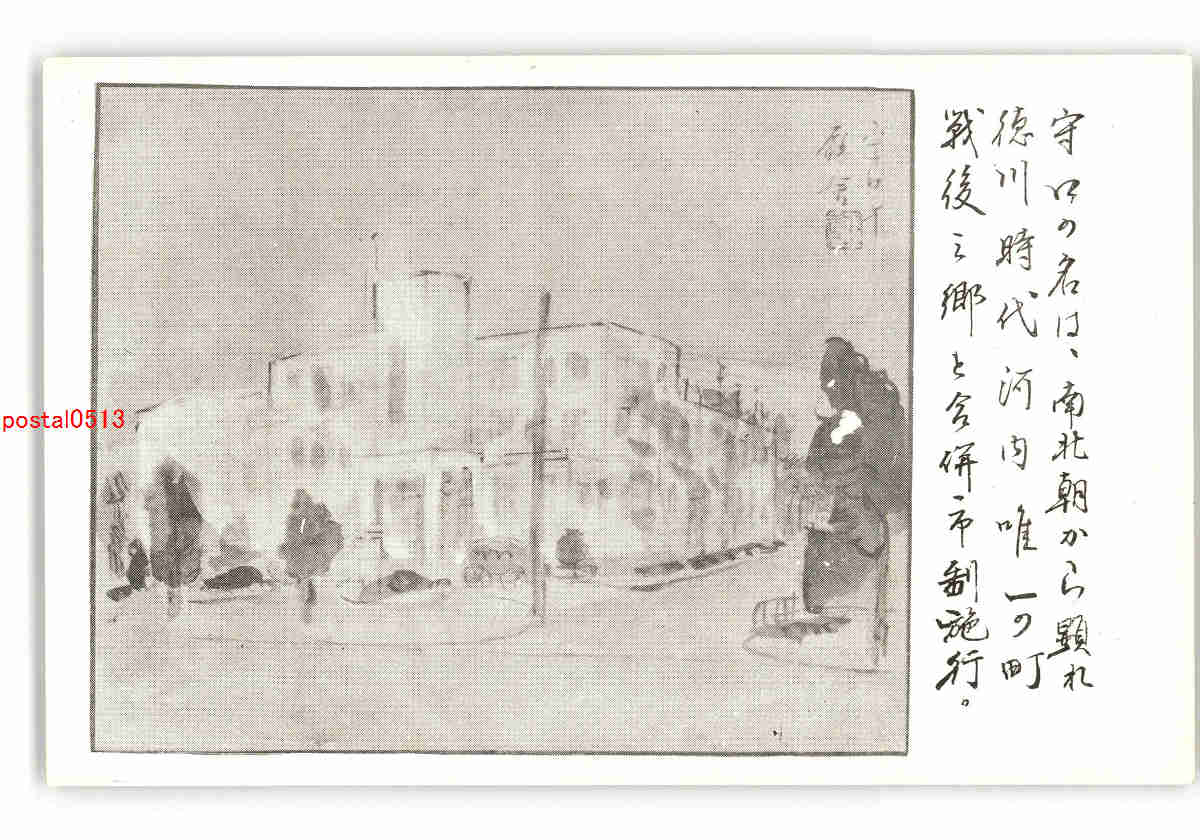 守口の名は、南北朝から顕れ
徳川時代河内唯一の町
戦後三郷と合併市制施行。
守口市
庁舎
postal0513